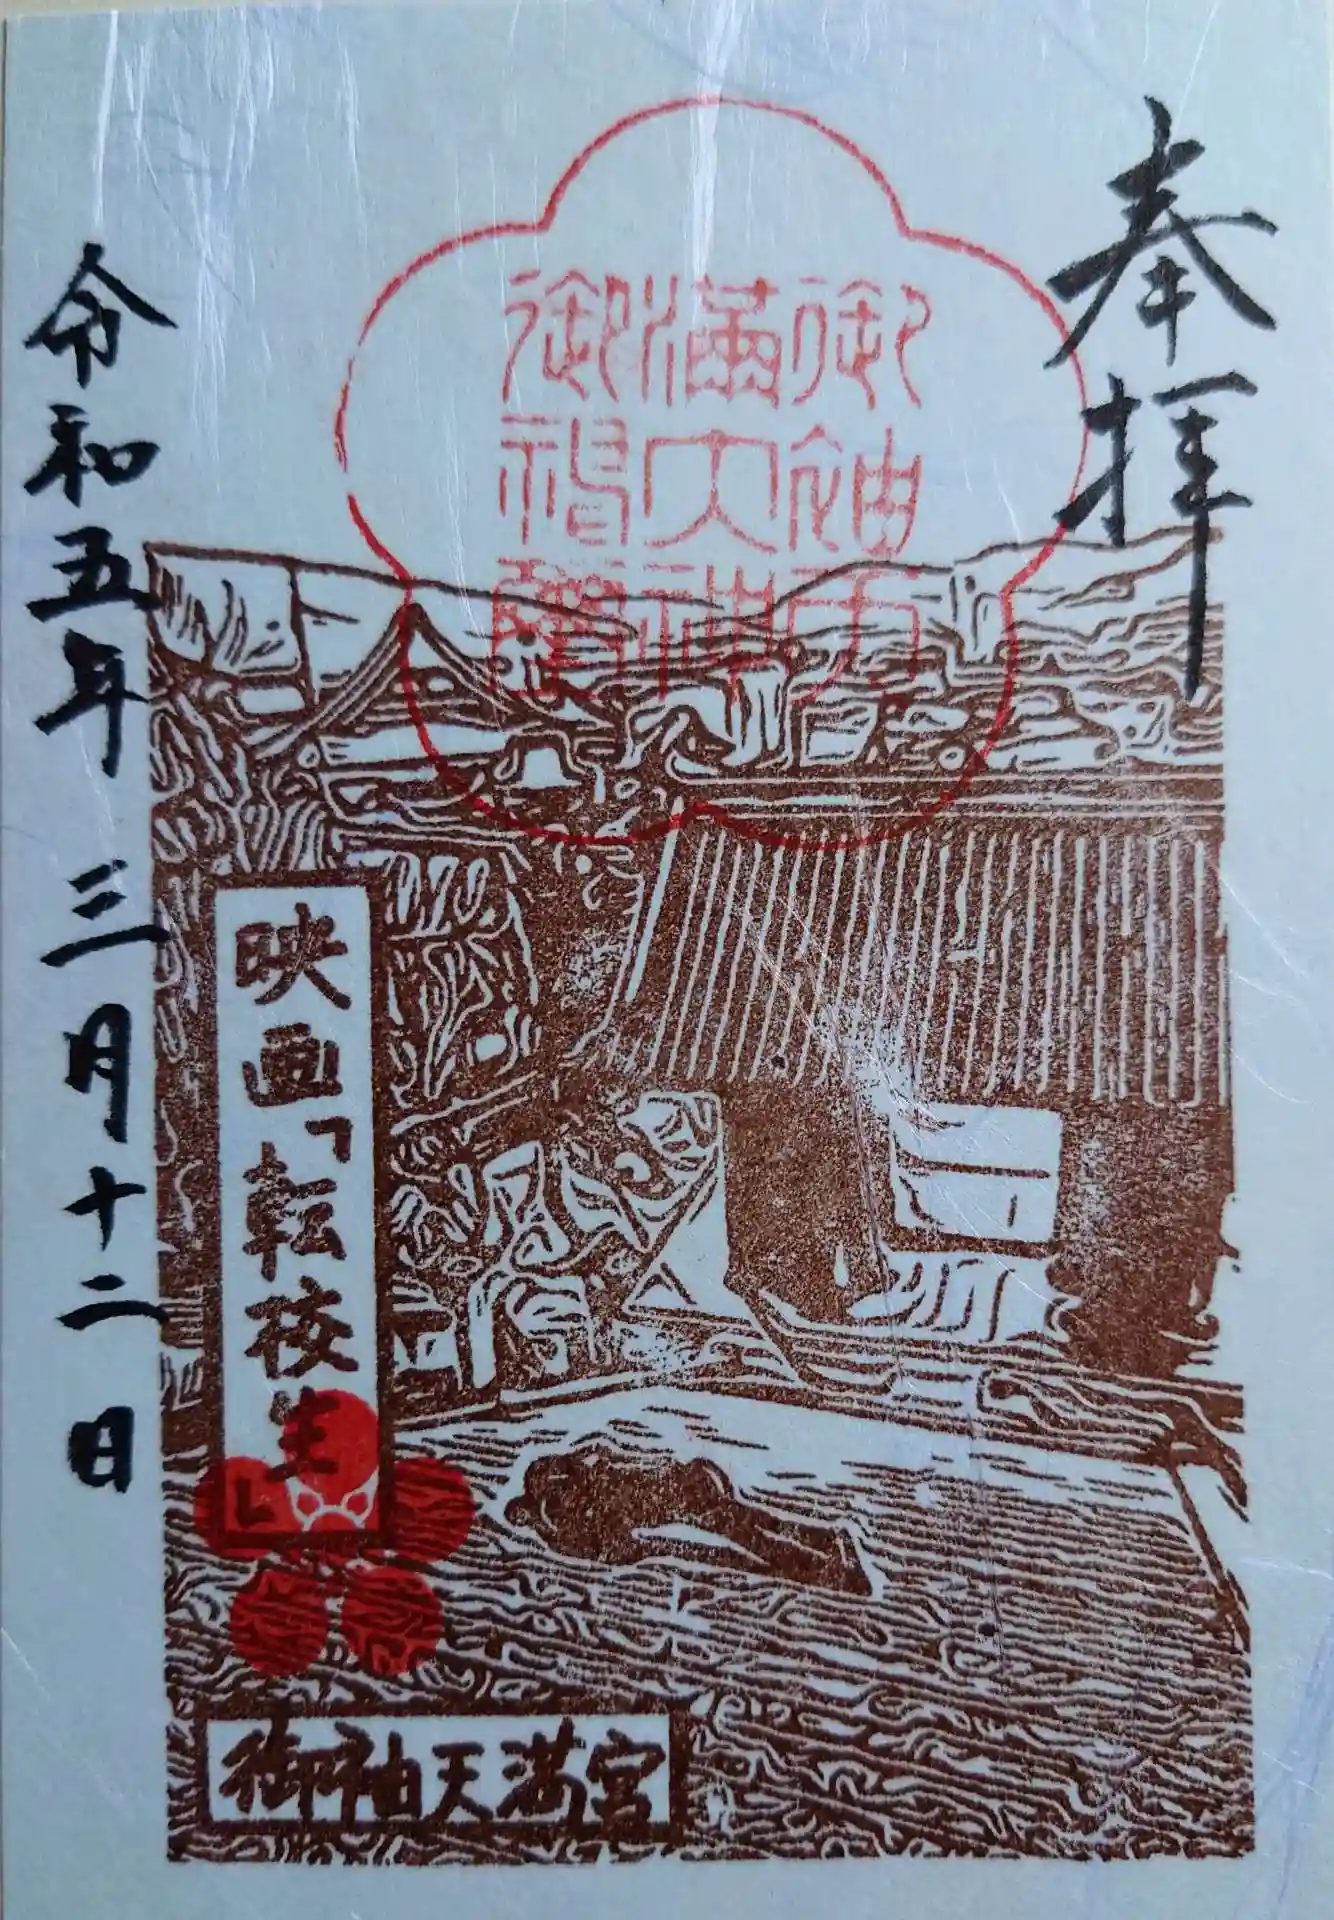 奉拝
御袖天満宮
映画「転校生」
令和五年 三月十二日